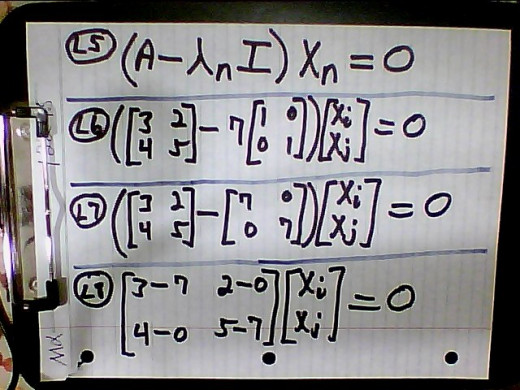 L5 (A-λnI)Xn=0
L6 ([3 2; 4 5]-7[1 0; 0 1])[Xi; Xj]=0
L7 ([3 2; 4 5]-[7 0; 0 7])[Xi; Xj]=0
L8 [3-7 2-0; 4-0 5-7][Xi; Xj]=0